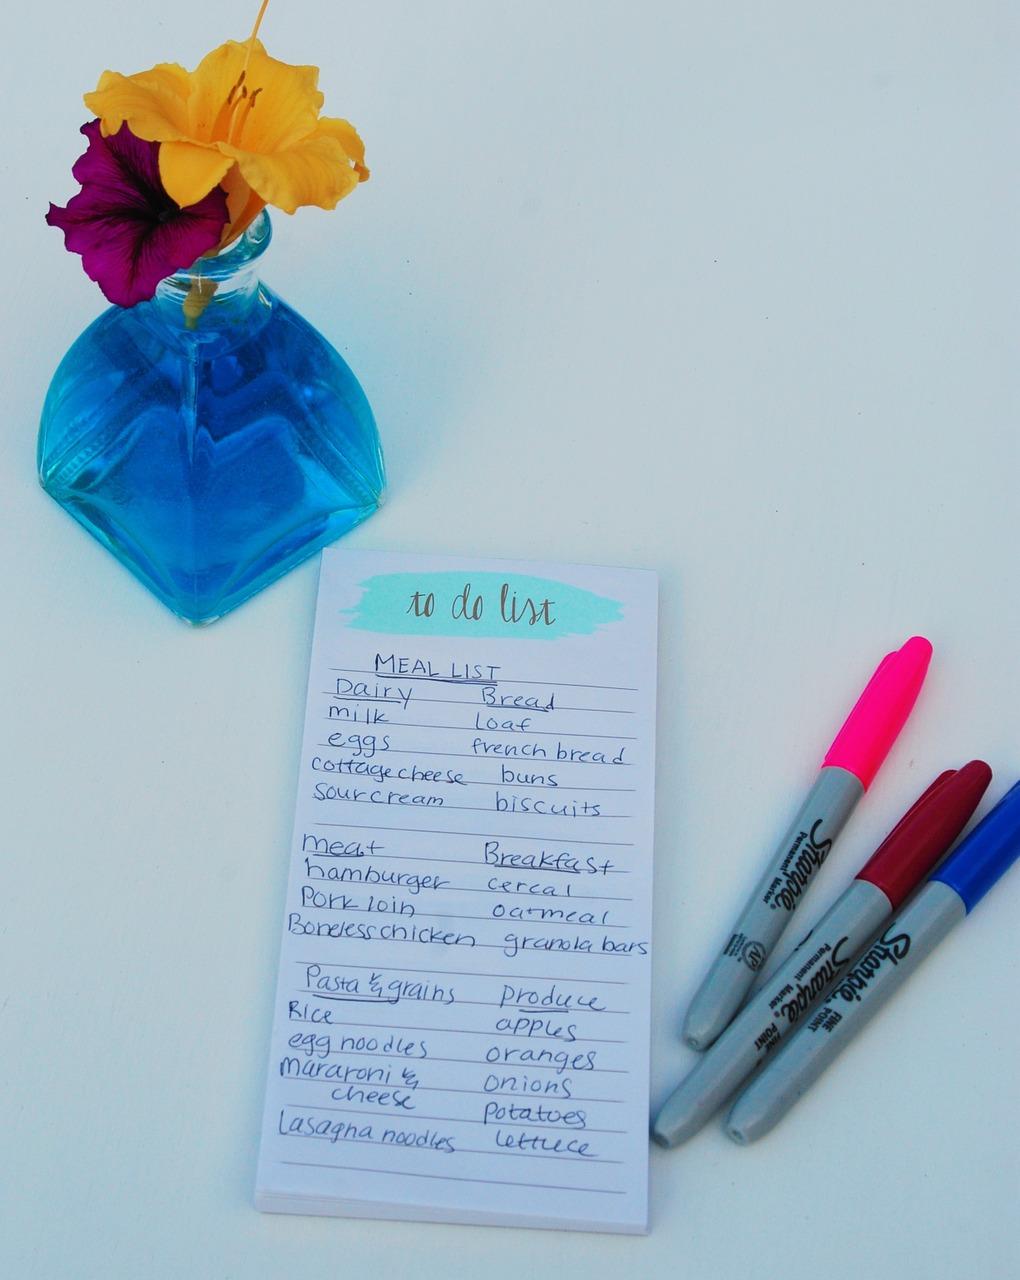 to do list
MEAL LIST
Dairy
milk
eggs
cottage cheese
sour cream
Bread
loaf
french bread
buns
biscuits
meat
hamburger
Pork loin
Boneless chicken
Breakfast
cereal
oatmeal
granola bars
Pasta & grains
Rice
egg noodles
mararoni &
cheese
Lasagna noodles
produce
apples
oranges
onions
potatoes
lettuce
Sharpie
Permanent Marker
AP
Sharpie
Permanent Marker
FINE
POINT
Sharpie
FINE
POINT